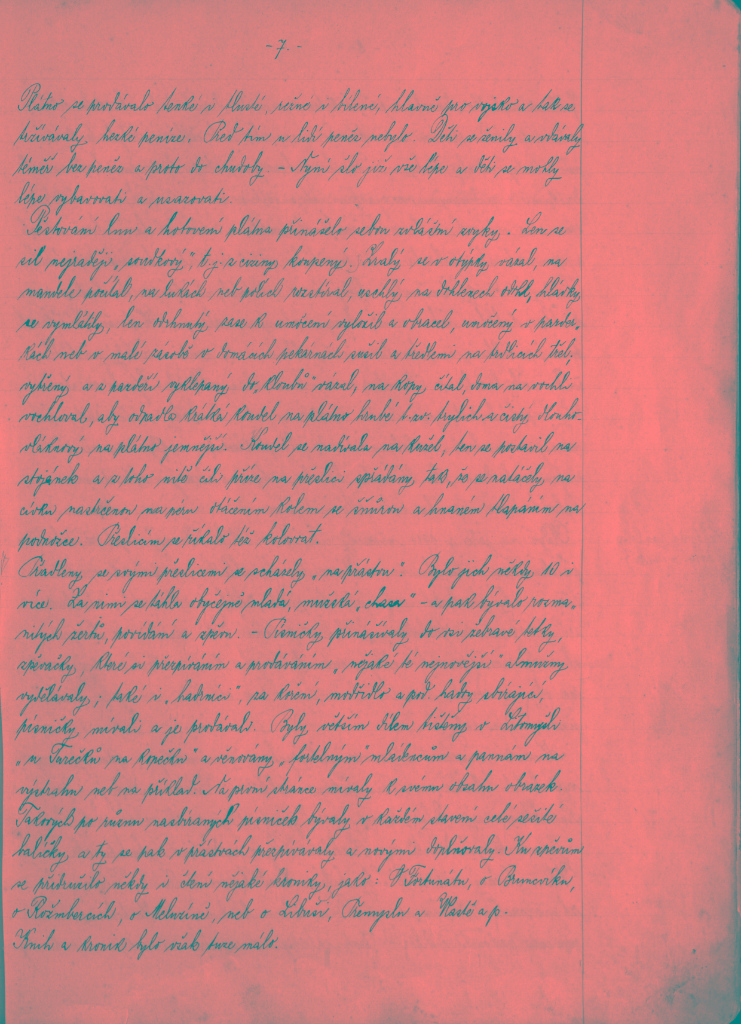 - 7. -
Plátno se prodávalo tenké i tlusté, režné i bílené, hlavně pro vojsko a tak se
tržívávaly hezké peníze. Před tím u lidí peněz nebylo. Děti se ženily a vdávaly
téměř bez peněz a proto do chudoby. - Nyní šlo již vše lépe a děti se mohly
lépe vybavovati a usazovati.
Pěstování lnu a hotovení plátna přinášelo sebou zvláštní zvyky. Len se
sil nejraději „soudkový", t. j. z ciziny koupený. Zralý se v otýpky vázal, na
mandele počítal, na lukách neb polích rozestíral, uschlý na drhlenech odrhl, hlávky
se vymlátily, len odrhnutý zase k umočení vyložil a obracel, umočený v pazder-
kách neb v malé zásobě v domácích pekárnách sušil a třídlemi na trdlicích třel,
vytřený a z pazdeří vyklepaný do „kloubů" vázal, na kopy čítal, doma na vochli
vochloval, aby odpadla krátká koudel na plátno hrubé t. zv. trylich a čistý dlouho-
vláknový na plátno jemnější. Koudel se nadívala na kužel, ten se postavil na
stojánek a z toho nitě čili příze na přeslici spřádány, tak, že se natáčely na
cívku nastrčenou na péru otáčením kolem se šňůrou a hnaném šlapáním na
podnožce. Přeslicím se říkalo též kolovrat.
Přadleny se svými přeslicemi se scházely „na přástvu". Bylo jich někdy 10 i
více. Za nimi se táhla obyčejně mladá, mužská „chasa" - a pak bývalo rozma-
nitých žertů, povídání a zpěvu. - Písničky přinášívaly do vsi žebravé tetky,
zpěvačky, které si přezpíváním a prodáváním „nějaké té nejnovější" almužny
vydělávaly; také i „hadrníci", za koření, modřidlo a pod. hadry sbírající,
písničky mívali a je prodávali. Byly větším dílem tištěny v Litomyšli
„u Turečků na kopečku" a věnovány „fortelným" mládencům a pannám na
výstrahu neb na příklad. Na první stránce mívaly k svému obsahu obrázek.
Takových po různu nasbíraných písniček bývaly v každém stavení celé sešité
balíčky, a ty se pak v přástvách přezpívávaly a novými doplňovaly. Ku zpěvům
se přidružilo někdy i čtení nějaké kroniky, jako: O Fortunátu, o Bruncvíku,
o Rožmbercích, o Meluzíně, neb o Libuši, Přemyslu a Vlastě a p.
Knih a kronik bylo však tuze málo.